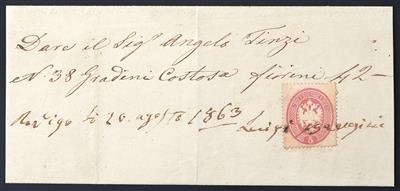 Dare il Sigr Angelo Tinzi
N. 38 Gradini Costosa fiorini 42-
Rovigo li 26 agosto 1863 Luigi